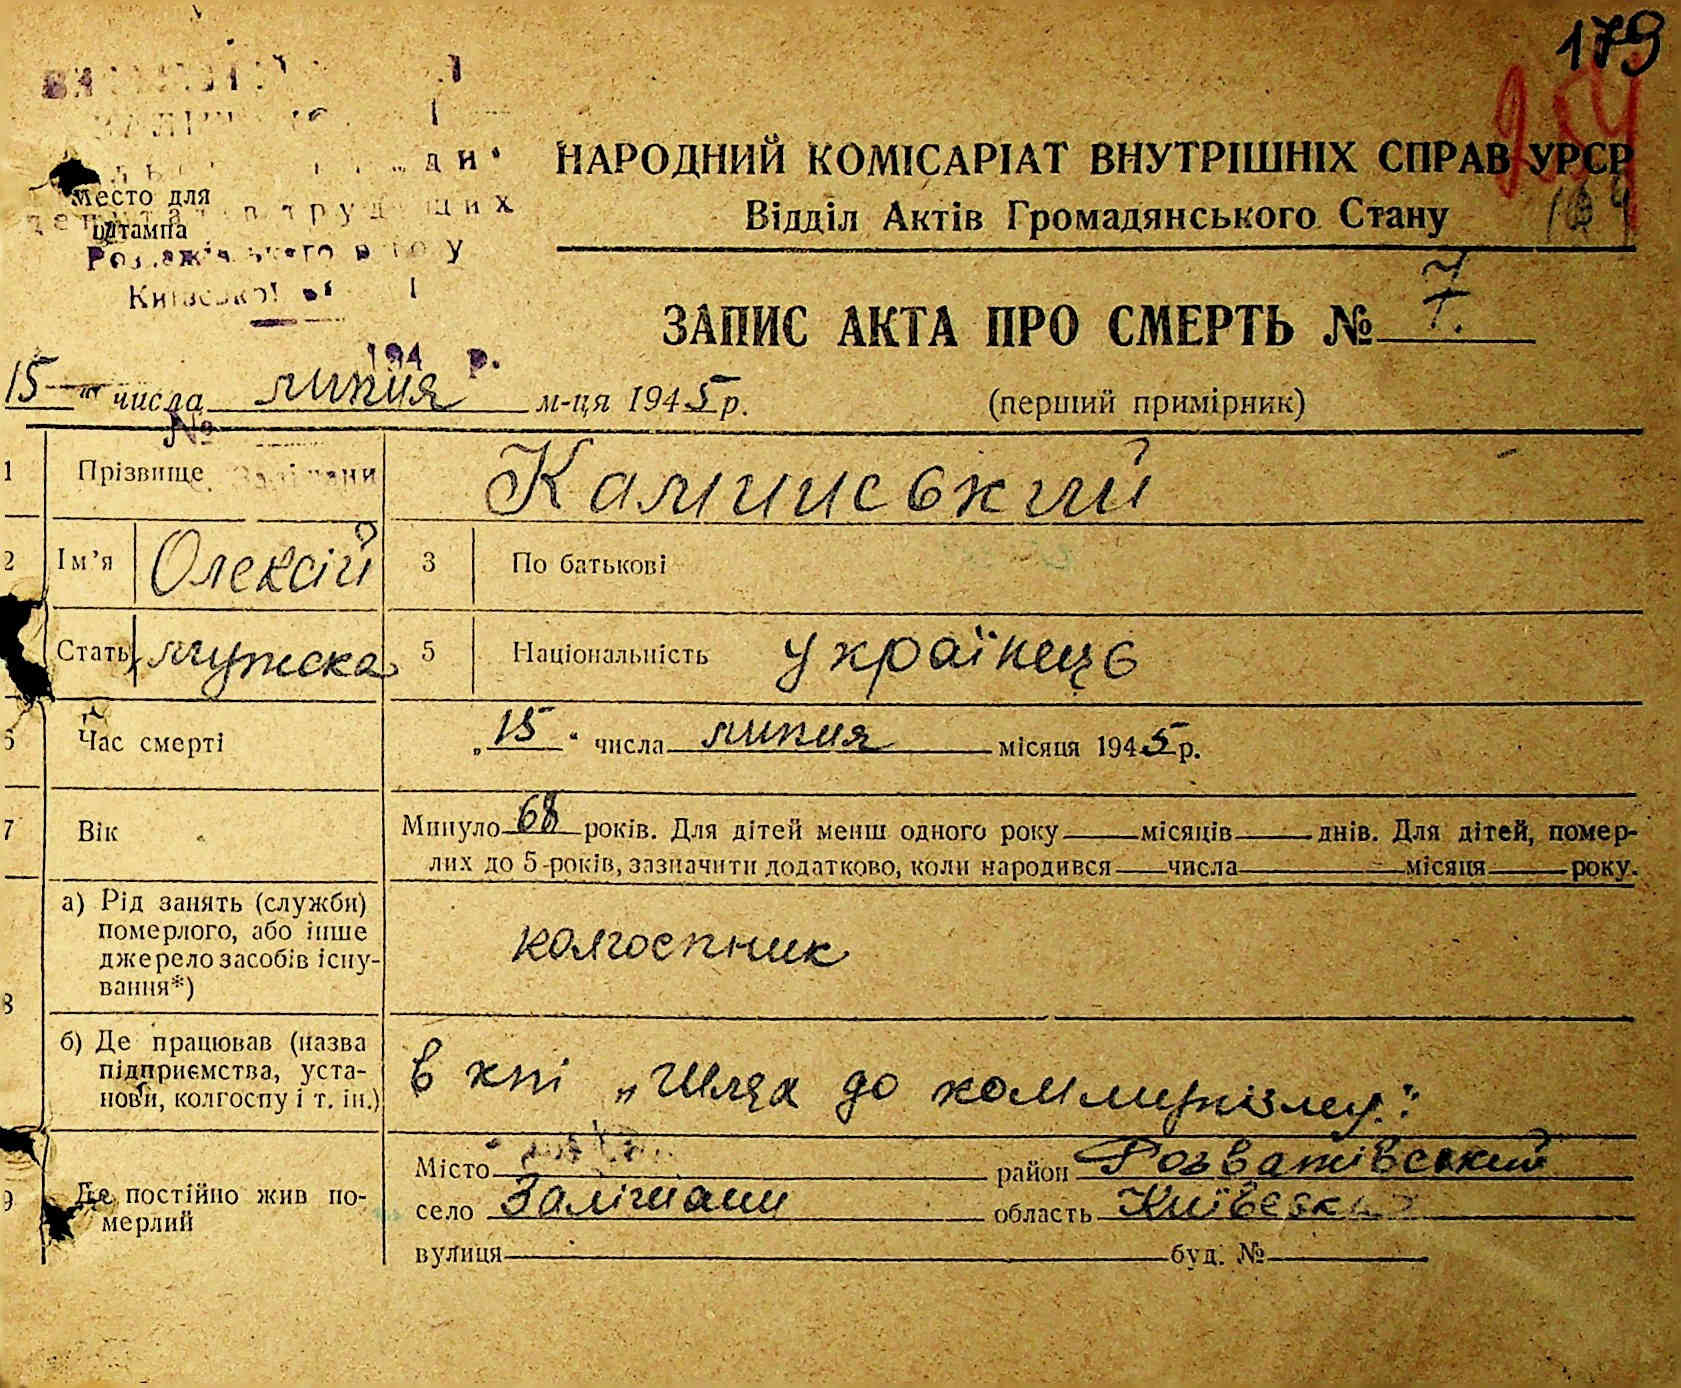 179
254
НАРОДНИЙ КОМІСАРІАТ ВНУТРІШНІХ СПРАВ УРСР
Відділ Актів Громадянського Стану
Место для
штампа
Київської
ЗАПИС АКТА ПРО СМЕРТЬ № 7.
194 р.
15 " числа липня м-ця 1945 р.
(перший примірник)
№
1 Прізвище Каминський
2 Ім'я Олексій 3 По батькові
Стать мужска 5 Національність українець
Час смерті „15" числа липня місяця 1945 р.
7 Вік Минуло 68 років. Для дітей менш одного року місяців днів. Для дітей, помер-
лих до 5-років, зазначити додатково, коли народився числа місяця року.
8 а) Рід занять (служби)
померлого, або інше
джерело засобів існу-
вання*)
колгоспник
б) Де працював (назва
підприємства, уста-
нови, колгоспу і т. ін.)
в кпі „Шлях до коммунізму."
9 Де постійно жив по-
мерлий
Місто район Розважівський
село Залішани область Київська
вулиця буд. №